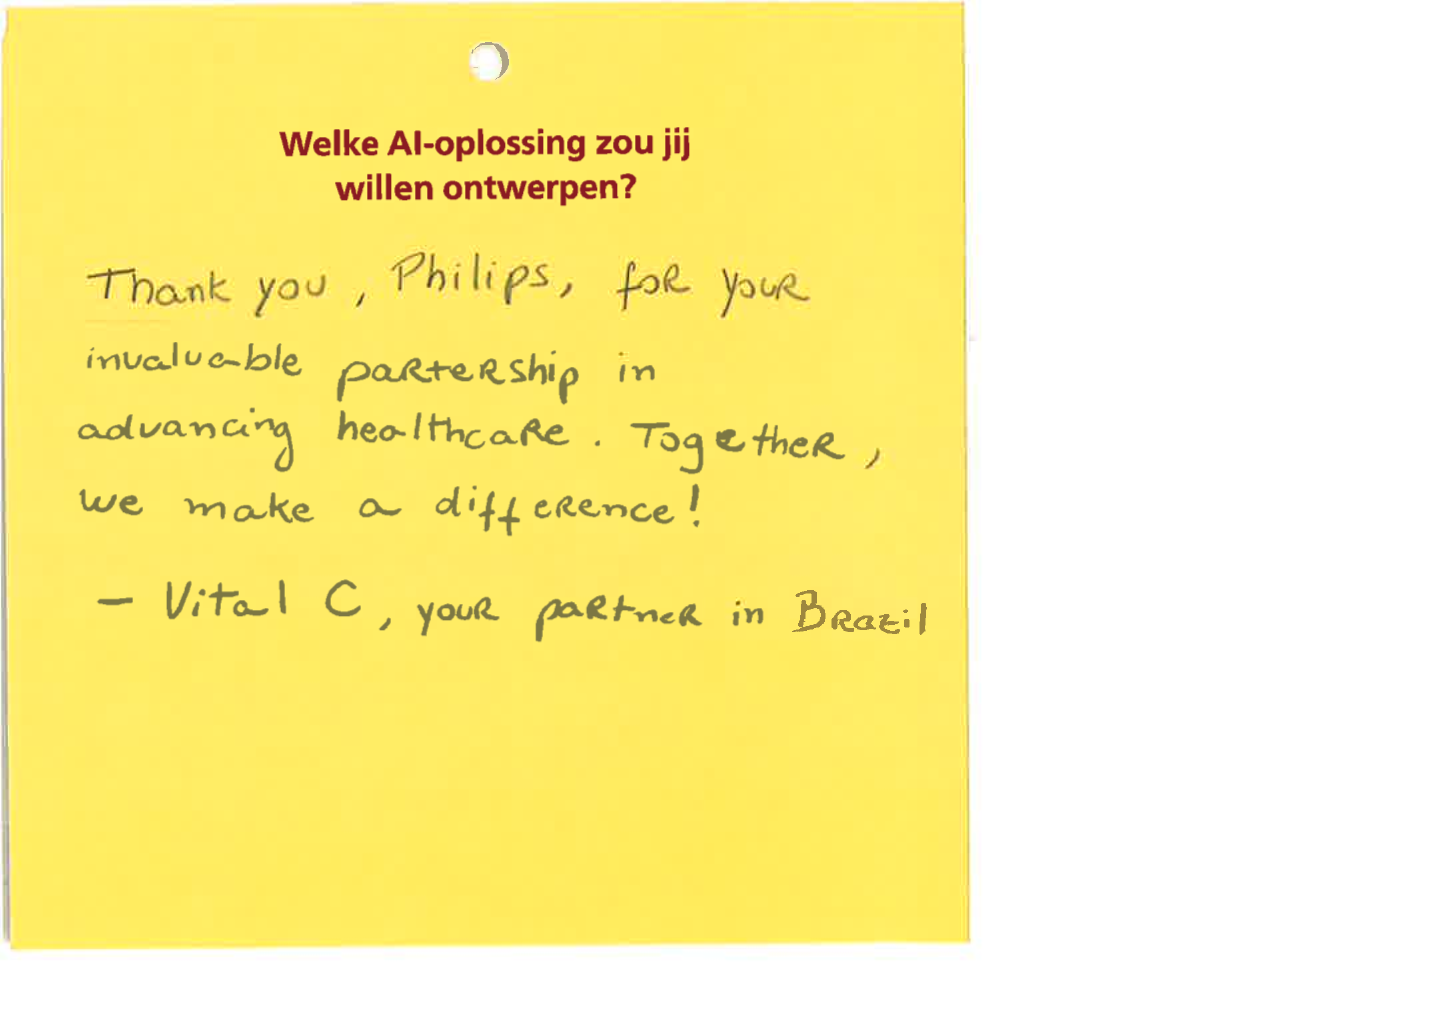 Welke AI-oplossing zou jij
willen ontwerpen?
Thank you, Philips, for your
invaluable partership in
advancing healthcare. Together,
we make a difference!
- Vital C, your partner in Brazil